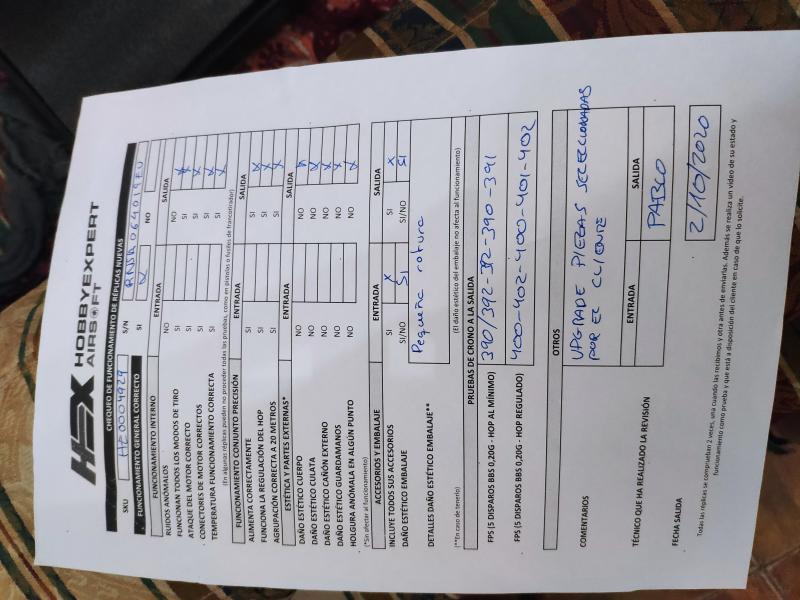 HEX HOBBYEXPERT
AIRSOFT
CHEQUEO DE FUNCIONAMIENTO DE RÉPLICAS NUEVAS
SKU HZ0004929 S/N
FUNCIONAMIENTO GENERAL CORRECTO SI X NO
FUNCIONAMIENTO INTERNO ENTRADA SALIDA
RUIDOS ANÓMALOS NO NO
FUNCIONAN TODOS LOS MODOS DE TIRO SI SI X
ATAQUE DEL MOTOR CORRECTO SI SI X
CONECTORES DE MOTOR CORRECTOS SI SI X
TEMPERATURA FUNCIONAMIENTO CORRECTA SI SI X
(En algunas réplicas pueden no proceder todas las pruebas, como en pistolas o fusiles de francotirador)
FUNCIONAMIENTO CONJUNTO PRECISIÓN ENTRADA SALIDA
ALIMENTA CORRECTAMENTE SI SI X
FUNCIONA LA REGULACIÓN DEL HOP SI SI X
AGRUPACIÓN CORRECTA A 20 METROS SI SI X
ESTÉTICA Y PARTES EXTERNAS* ENTRADA SALIDA
DAÑO ESTÉTICO CUERPO NO NO X
DAÑO ESTÉTICO CULATA NO NO X
DAÑO ESTÉTICO CAÑÓN EXTERNO NO NO X
DAÑO ESTÉTICO GUARDAMANOS NO NO X
HOLGURA ANÓMALA EN ALGÚN PUNTO NO NO X
(*Sin afectar al funcionamiento)
ACCESORIOS Y EMBALAJE ENTRADA SALIDA
INCLUYE TODOS SUS ACCESORIOS SI X SI X
DAÑO ESTÉTICO EMBALAJE SI/NO SI SI/NO SI
DETALLES DAÑO ESTÉTICO EMBALAJE** Pequeña rotura
(**En caso de tenerlo) (El daño estético del embalaje no afecta al funcionamiento)
PRUEBAS DE CRONO A LA SALIDA
FPS (5 DISPAROS BBS 0,20G - HOP AL MÍNIMO) 390/392-392-390-391
FPS (5 DISPAROS BBS 0,20G - HOP REGULADO) 400-402-400-401-402
OTROS
COMENTARIOS UPGRADE PIEZAS SELECCIONADAS
POR EL CLIENTE
ENTRADA SALIDA
TÉCNICO QUE HA REALIZADO LA REVISIÓN PABLO
FECHA SALIDA 2/10/2020
Todas las réplicas se comprueban 2 veces, una cuando las recibimos y otra antes de enviarlas. Además se realiza un vídeo de su estado y
funcionamiento como prueba y que está a disposición del cliente en caso de que lo solicite.